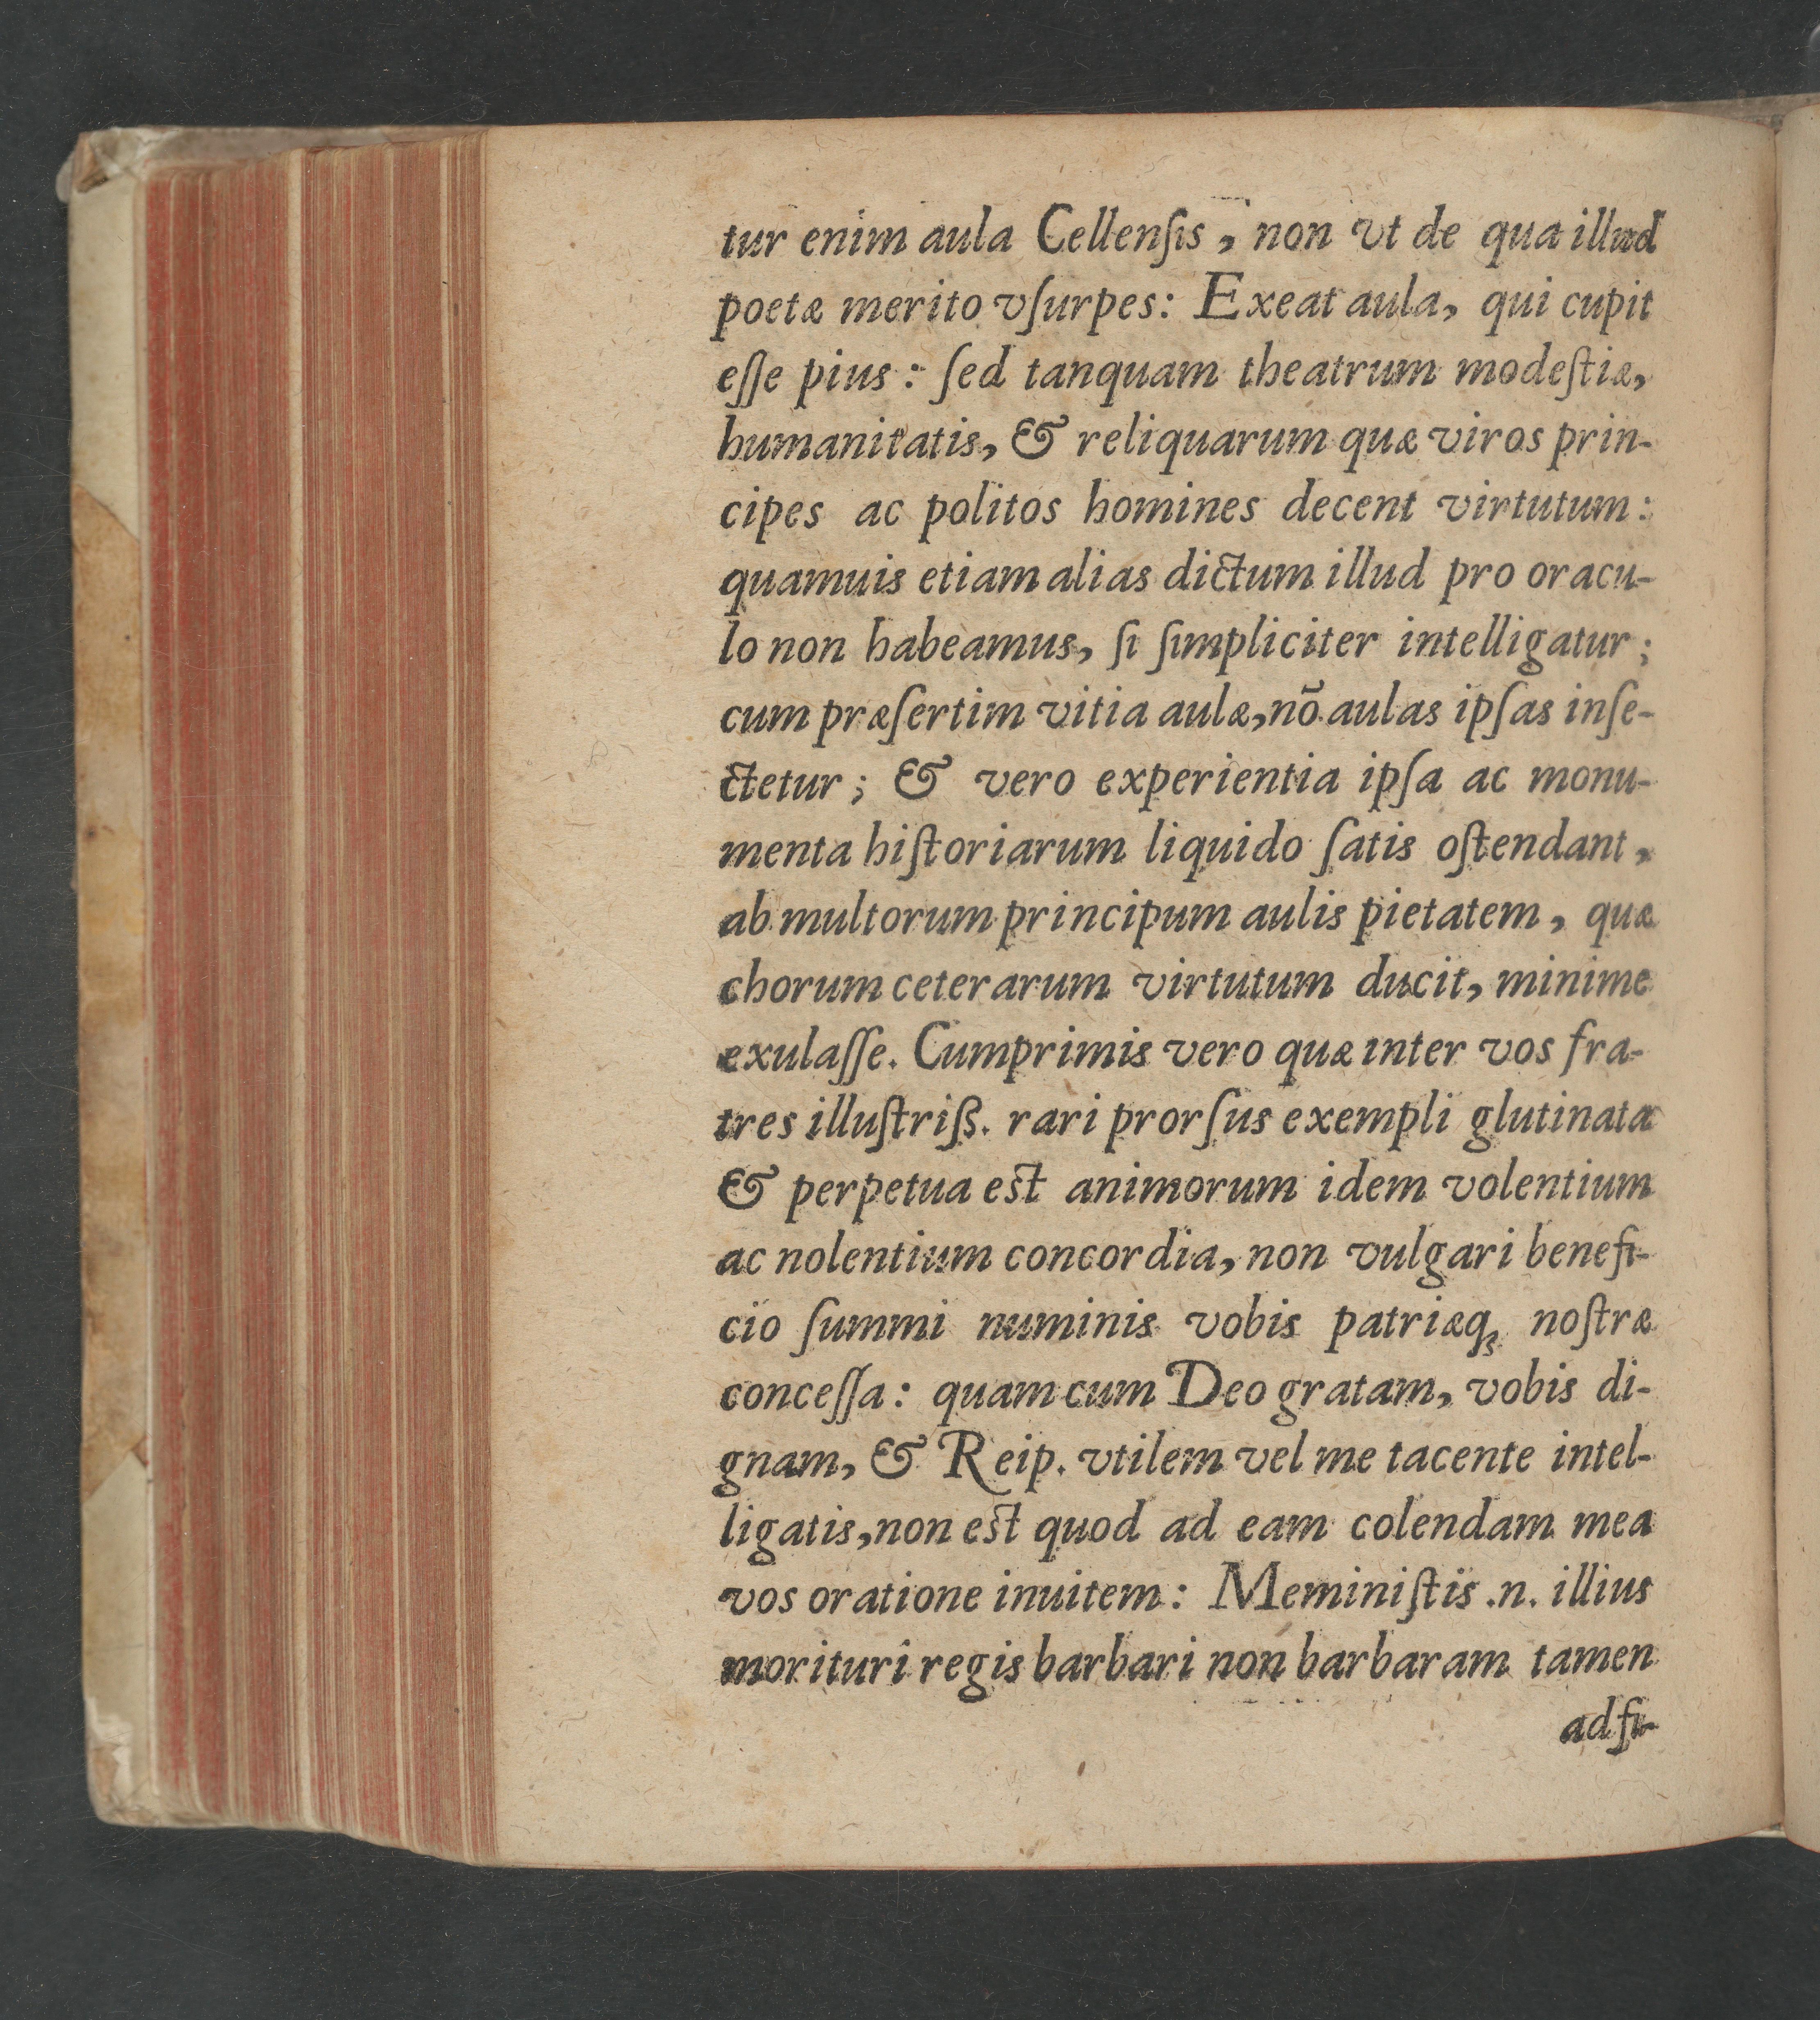 tur enim aula Cellenſis, non vt de qua illud
poetæ merito vſurpes: Exeat aula, qui cupit
eſſe pius: ſed tanquam theatrum modeſtiæ,
humanitatis, & reliquarum quæ viros prin-
cipes ac politos homines decent virtutum:
quamuis etiam alias dictum illud pro oracu-
lo non habeamus, ſi ſimpliciter intelligatur;
cum præſertim vitia aulæ, nō aulas ipſas inſe-
ctetur; & vero experientia ipſa ac monu-
menta hiſtoriarum liquido ſatis oſtendant,
ab multorum principum aulis pietatem, quæ
chorum ceterarum virtutum ducit, minime
exulaſſe. Cumprimis vero quæ inter vos fra-
tres illuſtriß. rari prorſus exempli glutinata
& perpetua est animorum idem volentium
ac nolentium concordia, non vulgari benefi-
cio ſummi numinis vobis patriæq; noſtræ
conceſſa: quam cum Deo gratam, vobis di-
gnam, & Reip. vtilem vel me tacente intel-
ligatis, non est quod ad eam colendam mea
vos oratione inuitem: Meminiſtis .n. illius
morituri regis barbari non barbaram tamen
ad fi-